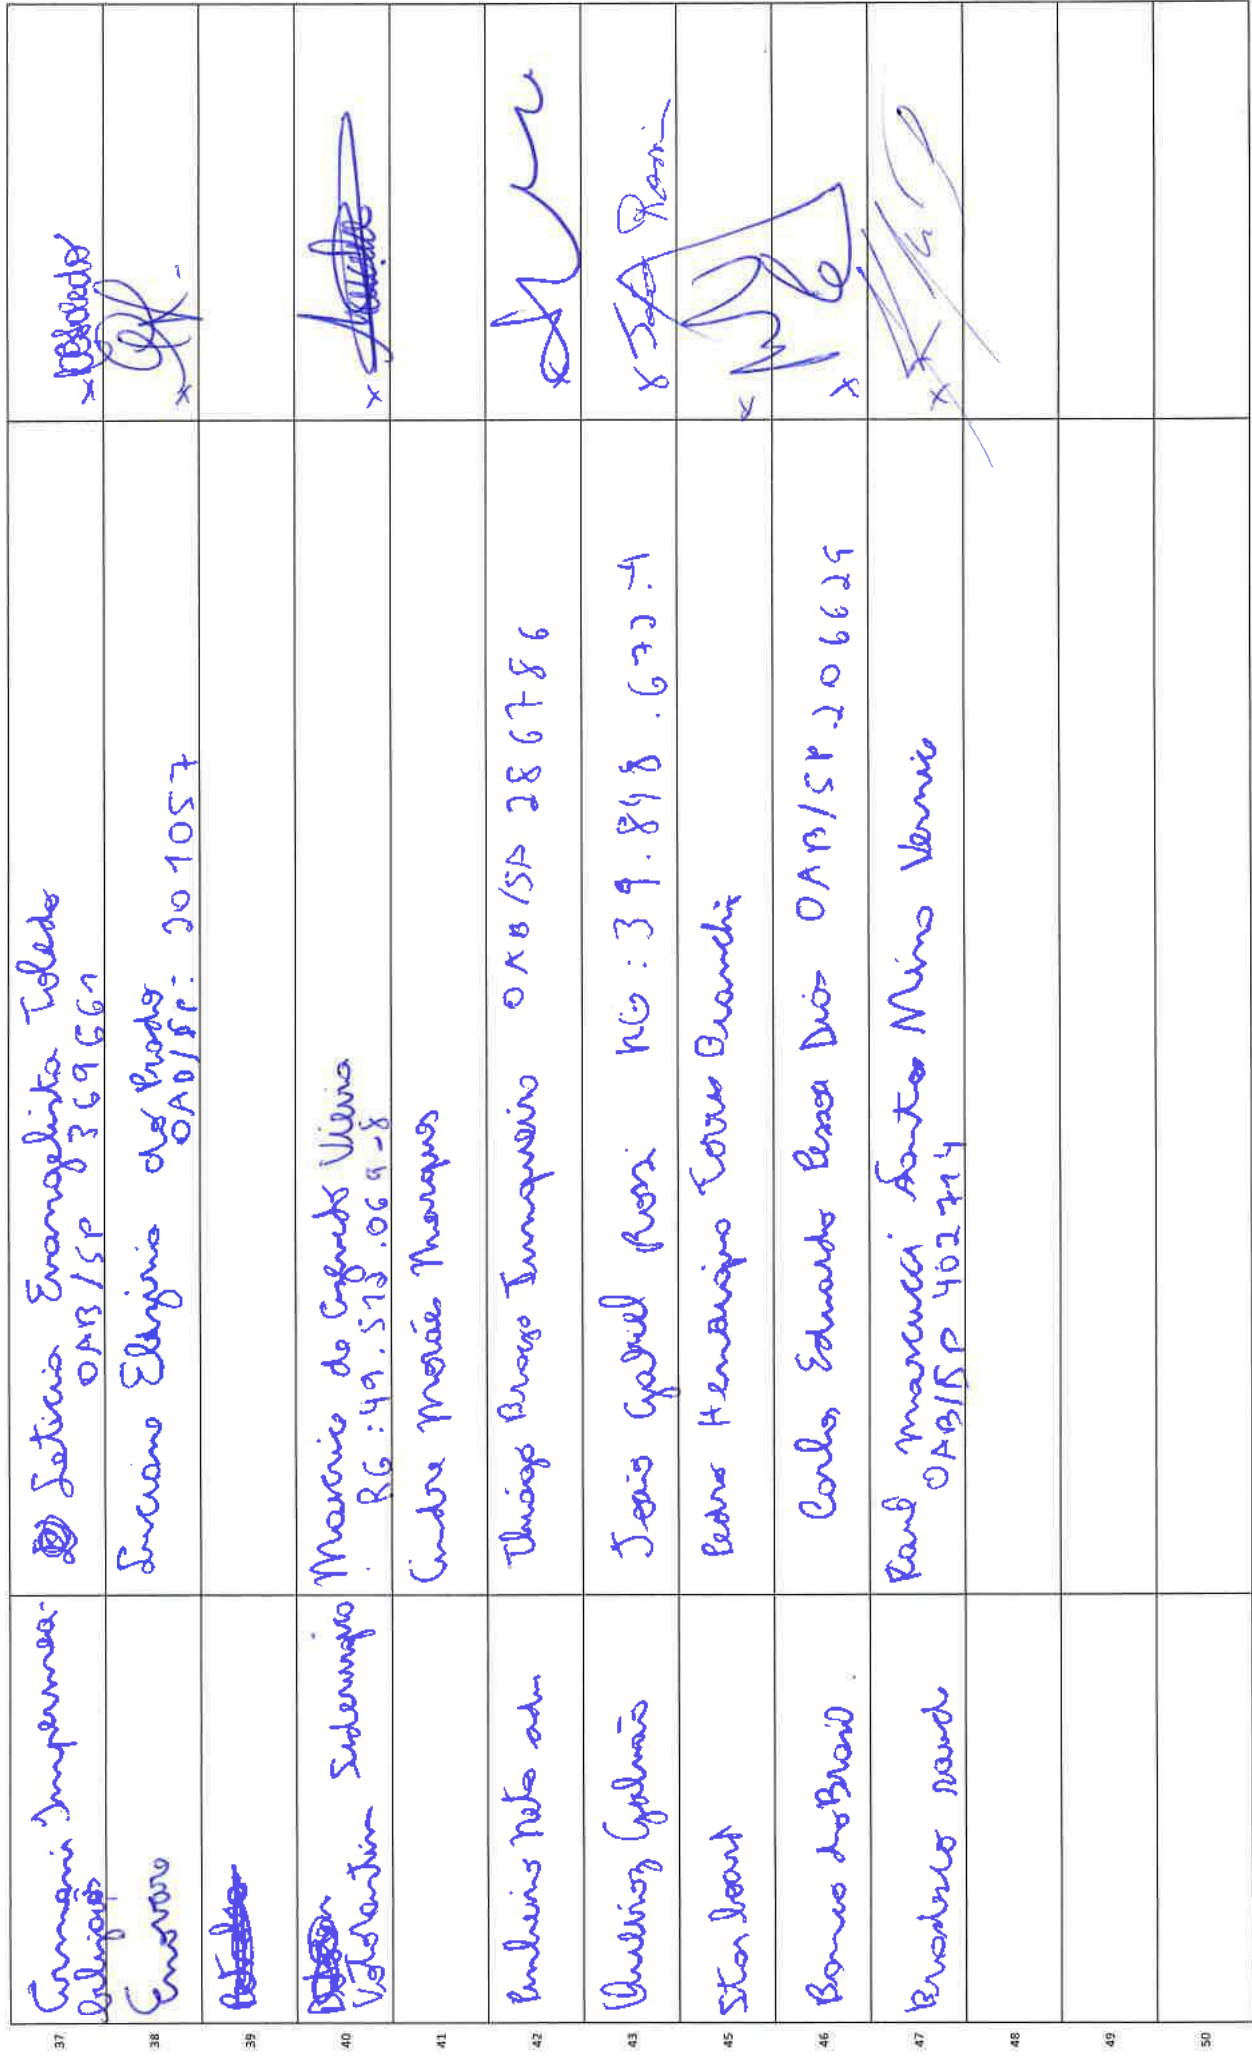 37
Armani Impermea-
Leticia Evangelista Toledo
OAB/SP 369661
38
Enovare
Luciano do Prado
OAB/SP: 201057
39
40
Votorantim Siderurgia
Mauricio de Azevedo Vieira
RG:49.512.069-8
41
Andre Morães Marques
42
Pinheiro Neto adv
Thiago Braga Junqueira OAB/SP 286786
43
Queiroz Galvão
João Gabriel Rossi RG:39.848.672-4
João Rossi
45
Starboard
Pedro Henrique Torres Bianchi
46
Banco do Brasil
Carlos Eduardo Pessoa Dias OAB/SP 206629
47
Bradesco
Raul Marcucci Santos Vernice
OAB/SP 402714
48
49
50